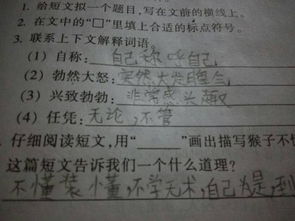 1. 给短文拟一个题目,写在文前的横线上。
2. 在文中的“□”里填上合适的标点符号。
3. 联系上下文解释词语。
(1) 自称:自己称呼自己
(2) 勃然大怒:突然大发脾气
(3) 兴致勃勃:非常感兴趣
(4) 任凭:无论,不管
仔细阅读短文,用“ ”画出描写猴子不
这篇短文告诉我们一个什么道理?
不懂装懂,不学无术,自己为是,到